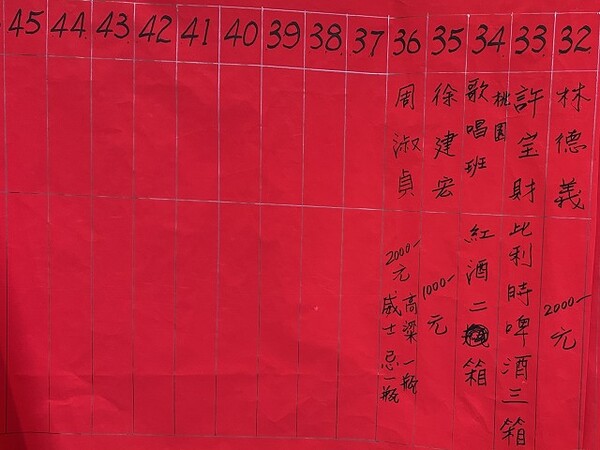 45 44 43 42 41 40 39 38 37 36 35 34 33 32
林德義
2000元
許宝財
比利時啤酒三箱
桃園
歌唱班
紅酒二箱
徐建宏
1000元
周淑貞
2000元
高粱一瓶
威士忌一瓶